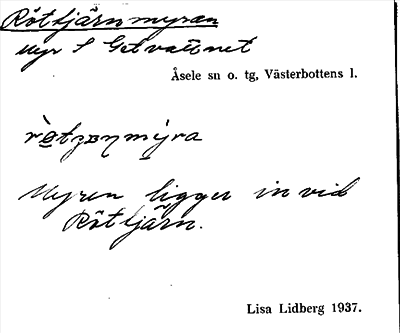 Rötjärnmyran
Myr S Getvattnet
Åsele sn o. tg, Västerbottens l.
Myren ligger invid
Rötjärn.
Lisa Lidberg 1937.